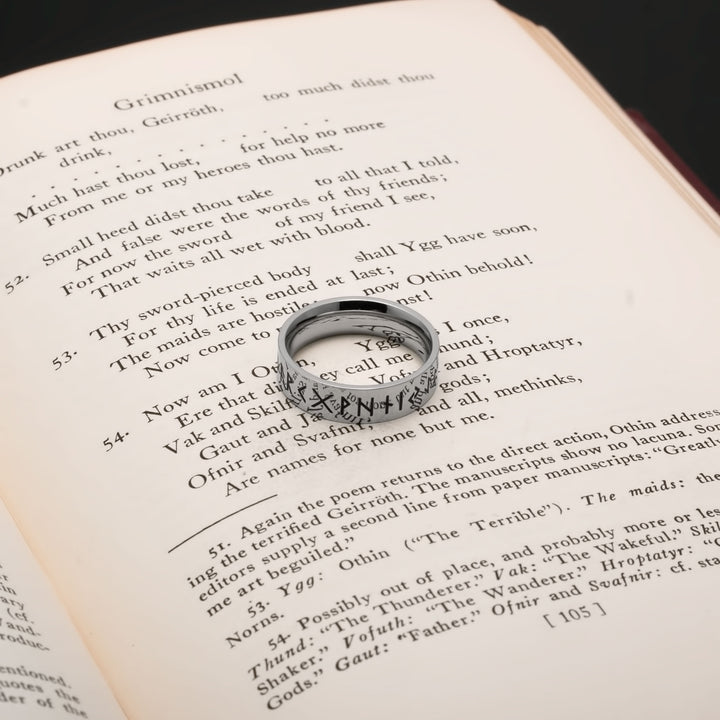 Grimnismol
Drunk art thou, Geirröth, too much didst thou
drink,
. . . . . . . . . . . . . .
Much hast thou lost, for help no more
From me or my heroes thou hast.
52. Small heed didst thou take to all that I told,
And false were the words of thy friends;
For now the sword of my friend I see,
That waits all wet with blood.
53. Thy sword-pierced body shall Ygg have soon,
For thy life is ended at last;
The maids are hostile; now Othin behold!
Now come to
54. Now am I Othin, Ygg I once,
Ere that did they call me Thund;
Vak and Skilfing, Vofuth and Hroptatyr,
Gaut and gods;
Ofnir and Svafnir and all, methinks,
Are names for none but me.
51. Again the poem returns to the direct action, Othin address-
ing the terrified Geirröth. The manuscripts show no lacuna. Some
editors supply a second line from paper manuscripts: "Greatly
me art beguiled."
53. Ygg: Othin ("The Terrible"). The maids: the
Norns.
54. Possibly out of place, and probably more or less
Thund: "The Thunderer." Vak: "The Wakeful." Skil
Shaker." Vofuth: "The Wanderer." Hroptatyr: "
Gods." Gaut: "Father." Ofnir and Svafnir: cf. sta
[ 105 ]
ᚷ ᚹ ᚺ ᚾ ᛁ